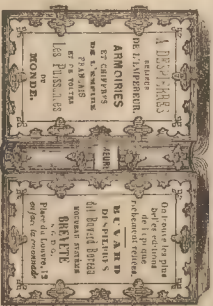 A. DESPIERRES
RELIEUR
DE L'EMPEREUR.
ARMOIRIES
ET CHIFFRES
DE L'EMPIRE
FRANÇAIS
ET DE TOUTES
Les Puissances
DU
MONDE.
On trouve les plus
de l'époque
richement reliées
BUVARD
DESPIERRES
dit Buvard Bureau
NOUVEAU SYSTÈME
BREVETÉ
S. G. D. G.
Place du Louvre, 12